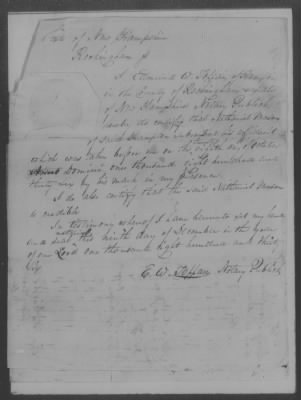 State of New Hampshire
Rockingham ss
I, Edmund W. Toppan of Hampton
in the County of Rockingham & State
of New Hampshire Notary Public
hereby do certify that Nathaniel
of said Hampton subscribed his affidavit
which was taken before me on the eighth
Domini one thousand eight hundred and
thirty six by his mark in my presence.
I do also certify that the said Nathaniel
is
In testimony whereof I have hereunto set my hand
and notarial seal this ninth day of December in the year
of our Lord one thousand eight hundred and thirty
six
E. W. Toppan Notary Public